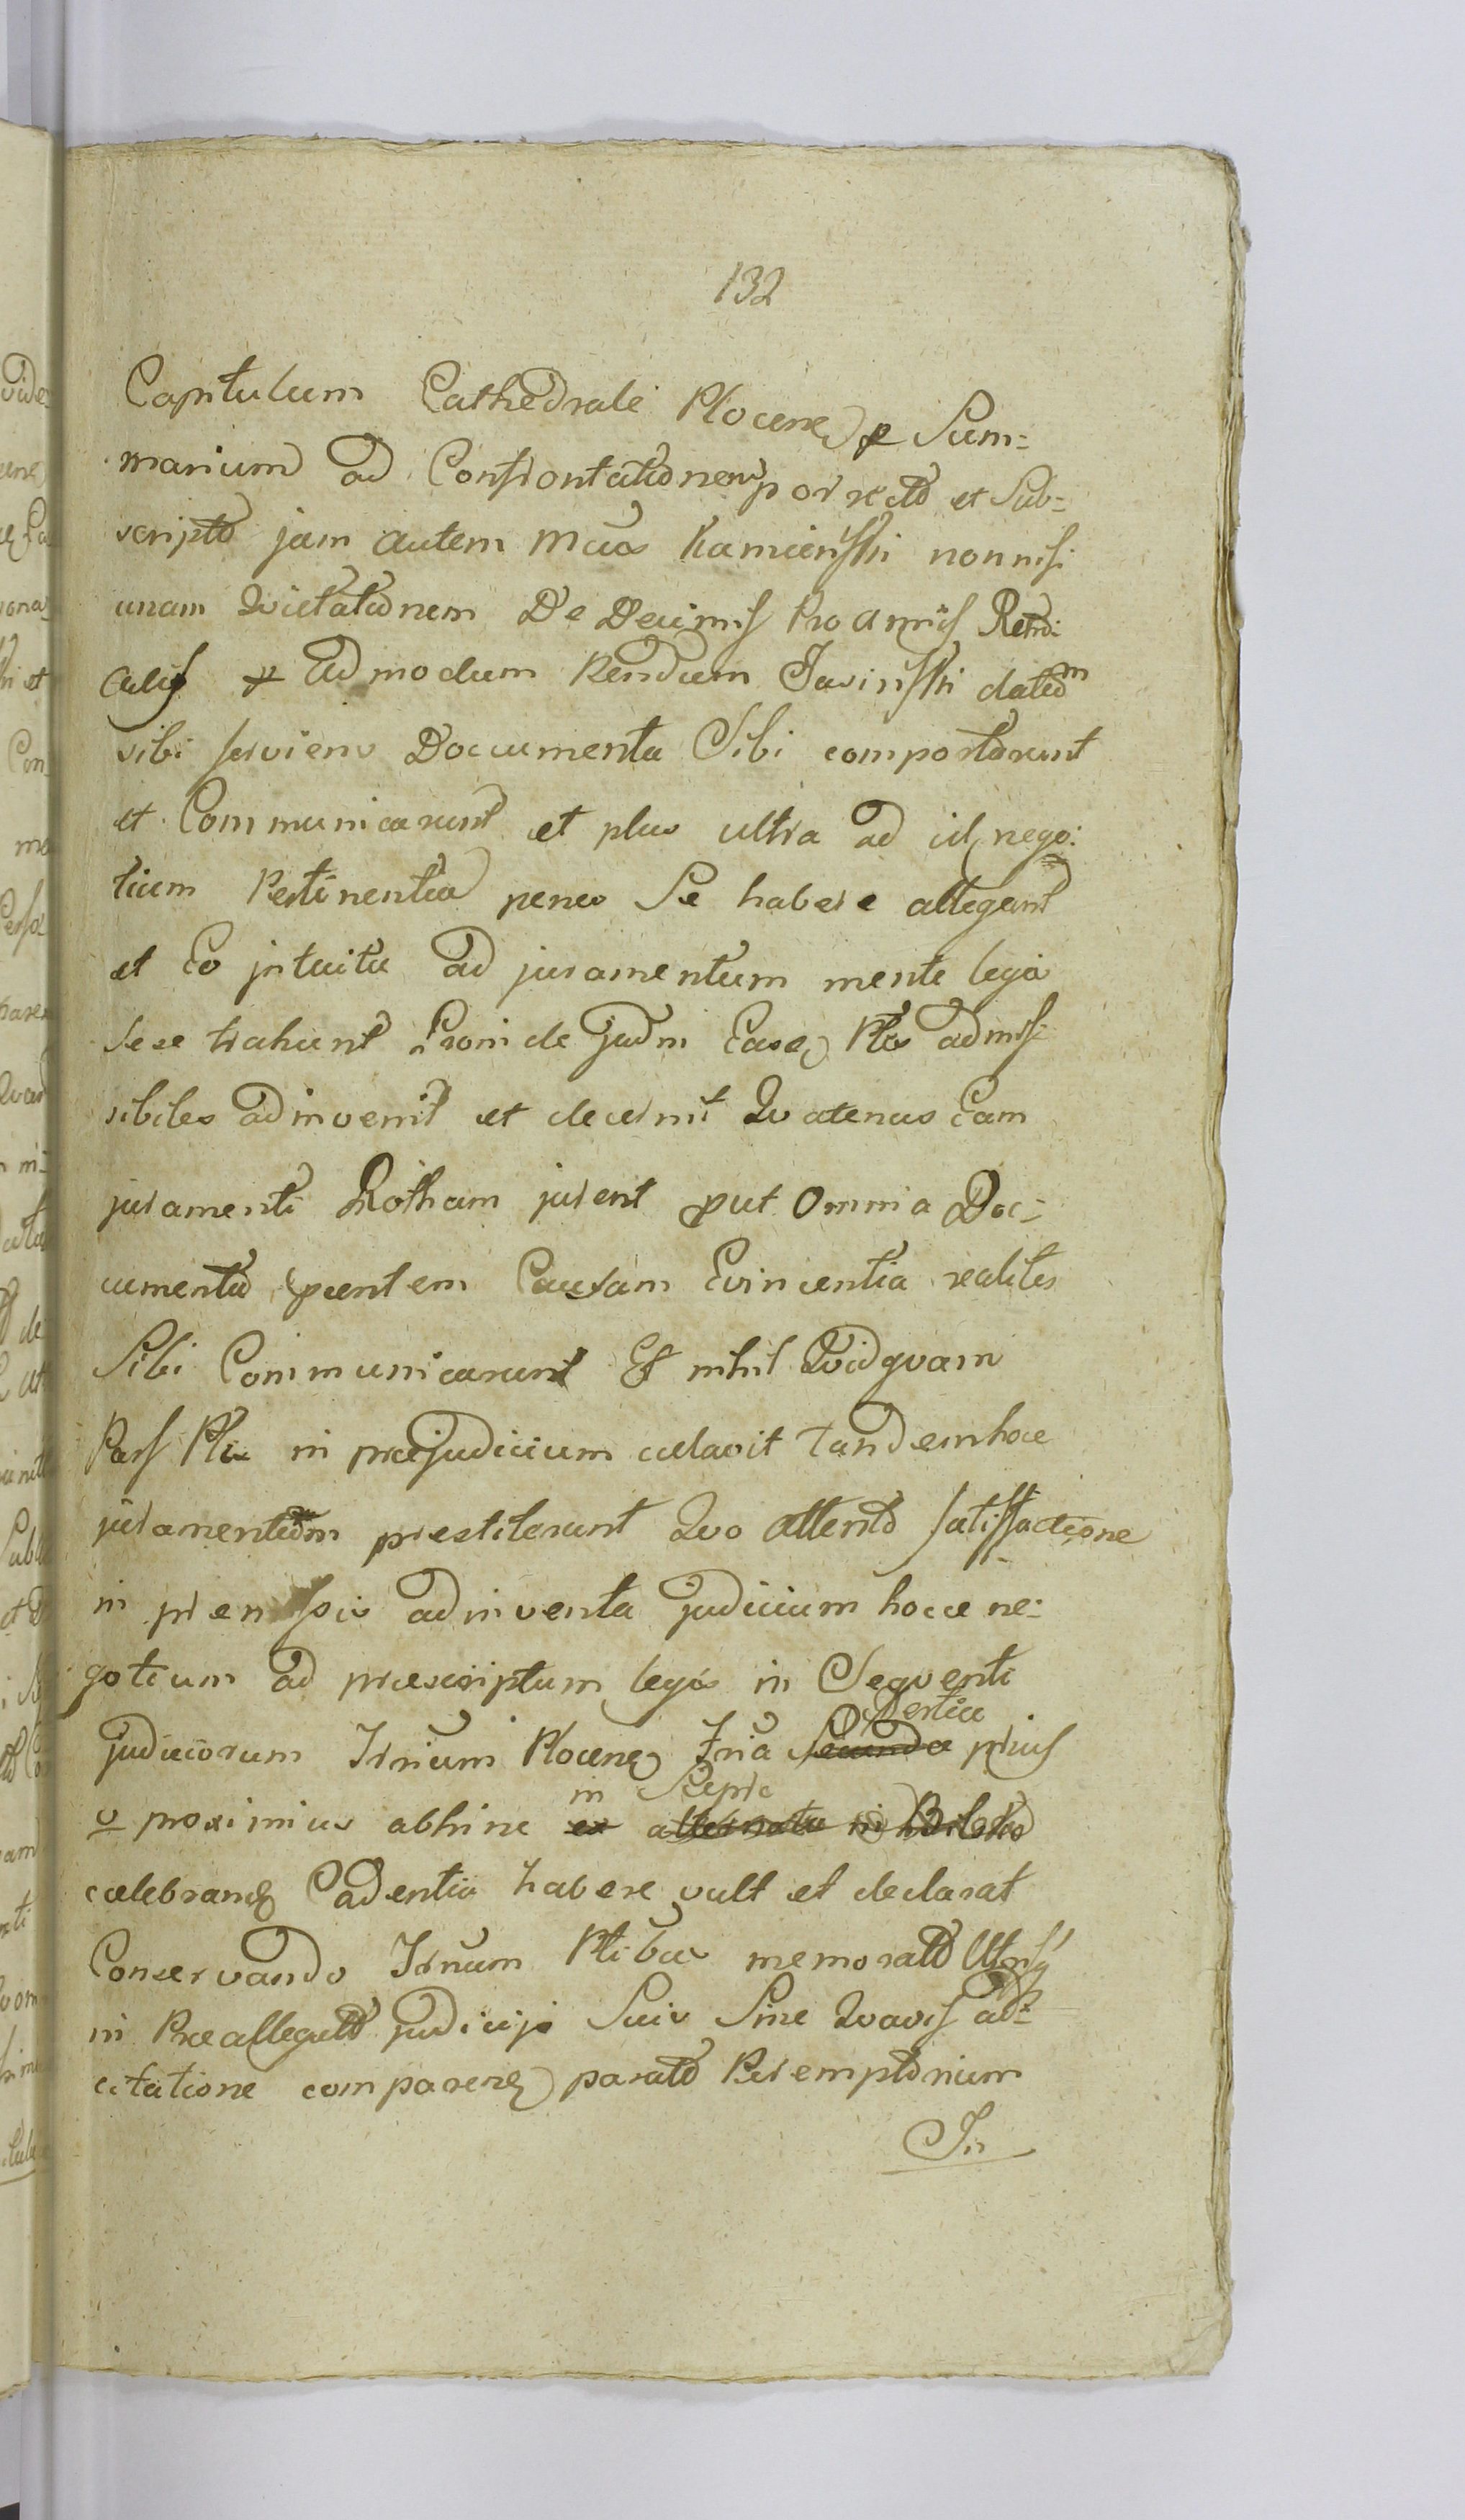 132
Capitulum Cathedrale Plocen p Sum=
marium ad Confrontationem porrecto et Sub=
scripto jam autem Mcus Kamienski nonnisi
unam Quietationem De Decimis Pro Annis Retro
actis p Admodum Rendum Jasinski datam
sibi servien Documenta Sibi comportarunt
et Communicarunt et plus ultra ad id nego:
tium Pertinentia penes Se habere allegant
et Eo intuitu ad juramentum mente legis
sese trahunt Proinde Judm Easq Ptes admis
sibiles adinvenit et decernit Quatenus Eam
juramenti Rotham jurent put Omnia Doc=
umenta pentem Causam Evincentia realiter
Sibi Communicarunt Et nihil Quidquam
Pars Pta in præjudicium celavit Tandem hoce
juramentum prestiterunt Quo attento satisfactione
in premissis adinventa judicium hocce ne=
gotium ad præscriptum legis in Sequenti
Tertia
judiciorum Trnium Plocen Tria Secunda prius
in Siepre
v proximius abhinc ex alternata in Bilsko
celebrand Cadentia habere vult et declarat
Conservando Trnum Ptibus memorato Utrisq
in Preallegato judicijs Suis Sine Quavis ad=
citatione comparend parato Peremptorium
In